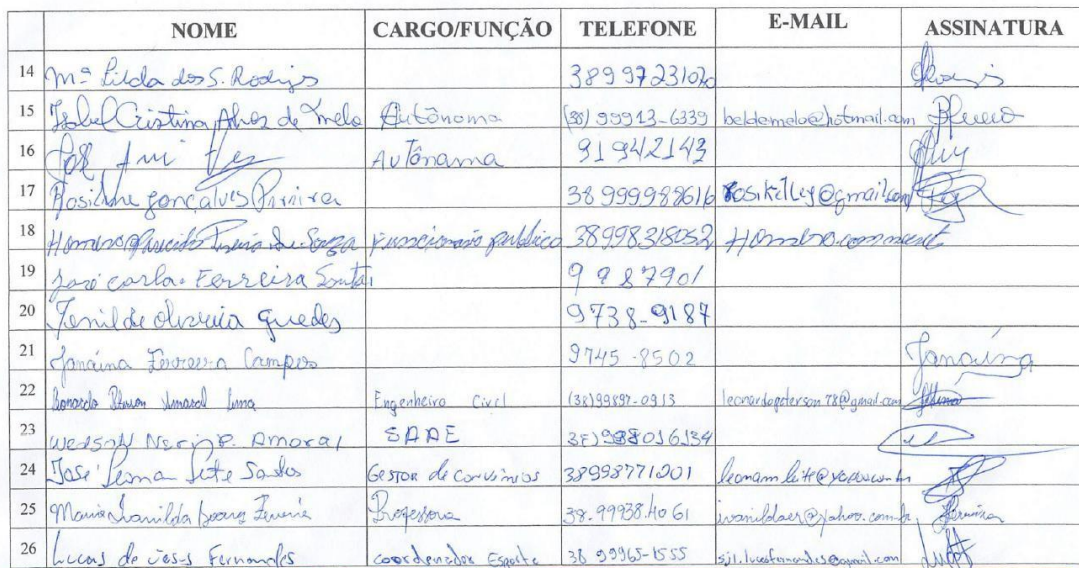 NOME CARGO/FUNÇÃO TELEFONE E-MAIL ASSINATURA
14 Mª Lilda dos S. Rodrigs 38997231020
15 Isabel Cristina Alves de Melo Autônoma (38) 99913-6339 beldemelo@hotmail.com
16 Autônama 91942143
17 Rosilene Gonçalves Pereira 38 999988616 rosikelley@gmail.com
18 Aparecido Pereira de Souza Funcionario publico 38998318052
19 José carlos Ferreira Santos 9987901
20 Jenilde oliveira Guedes 9738-9187
21 Janaína Ferreira Campos 9745-8502 Janaína
22 Leonardo Peterson Amaral Lima Engenheiro Civil (38)99897-0913 leonardopeterson78@gmail.com
23 Wedson Neri P. Amaral SAAE 988016134
24 José Leonam Leite Santos Gestor de convênios 38998771001
25 Maria Ivanilda Soares Ferreira Professora 38.99938.4061
26 Lucas de Jesus Fernandes coordenador Esporte 38 99965-1555 sjl.lucasfernandes@gmail.com